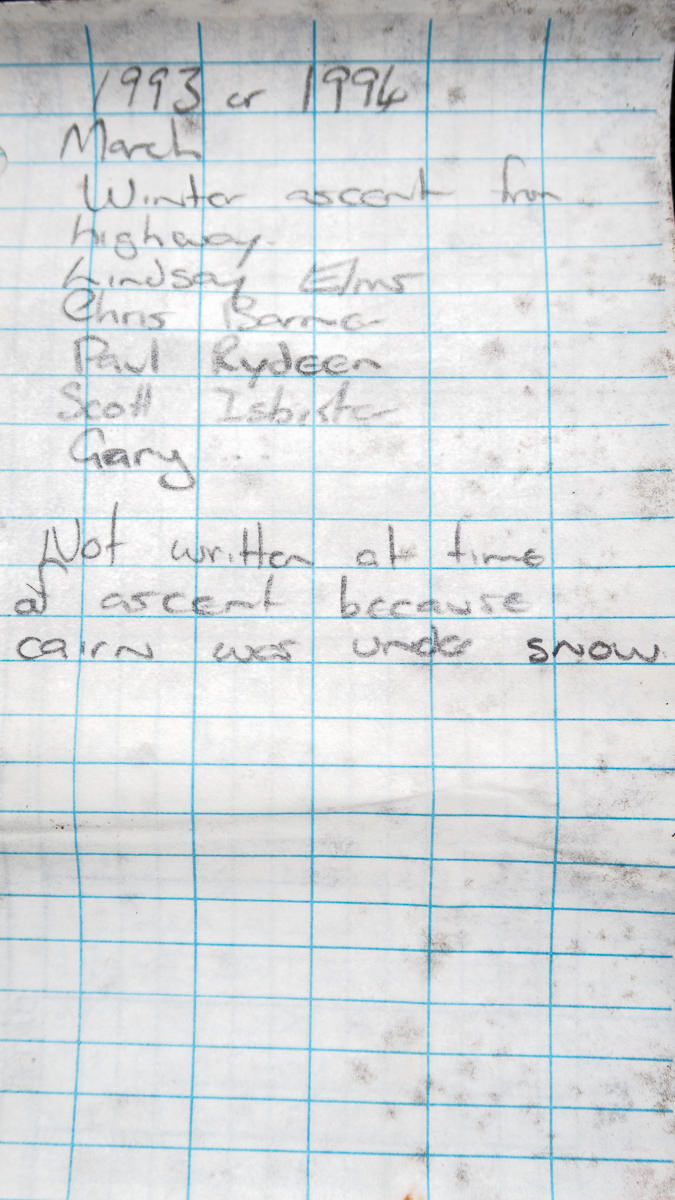 1993 or 1994
March
Winter ascent from
highway.
Lindsay Elms
Chris Barner
Paul Rydeen
Scott Isbister
Gary
Not written at time
of ascent because
cairn was under snow.